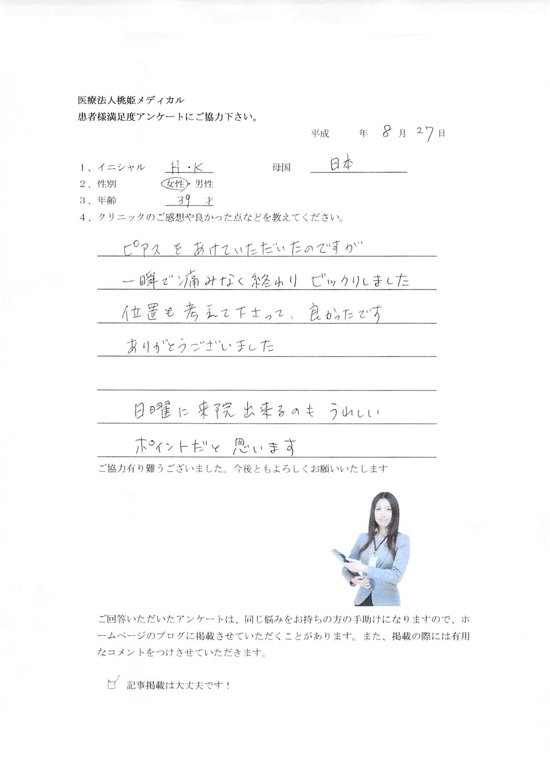 医療法人桃姫メディカル
患者様満足度アンケートにご協力下さい。
平成 年 8 月 27 日
1、イニシャル H・K 母国 日本
2、性別 女性・男性
3、年齢 39 才
4、クリニックのご感想や良かった点などを教えてください。
ピアスをあけていただいたのですが
一瞬で痛みなく終わり ビックリしました
位置も考えて下さって、良かったです
ありがとうございました
日曜に来院出来るのも うれしい
ポイントだと思います
ご協力有り難うございました。今後ともよろしくお願いいたします
ご回答いただいたアンケートは、同じ悩みをお持ちの方の手助けになりますので、ホ
ームページのブログに掲載させていただくことがあります。また、掲載の際には有用
なコメントをつけさせていただきます。
☑ 記事掲載は大丈夫です！